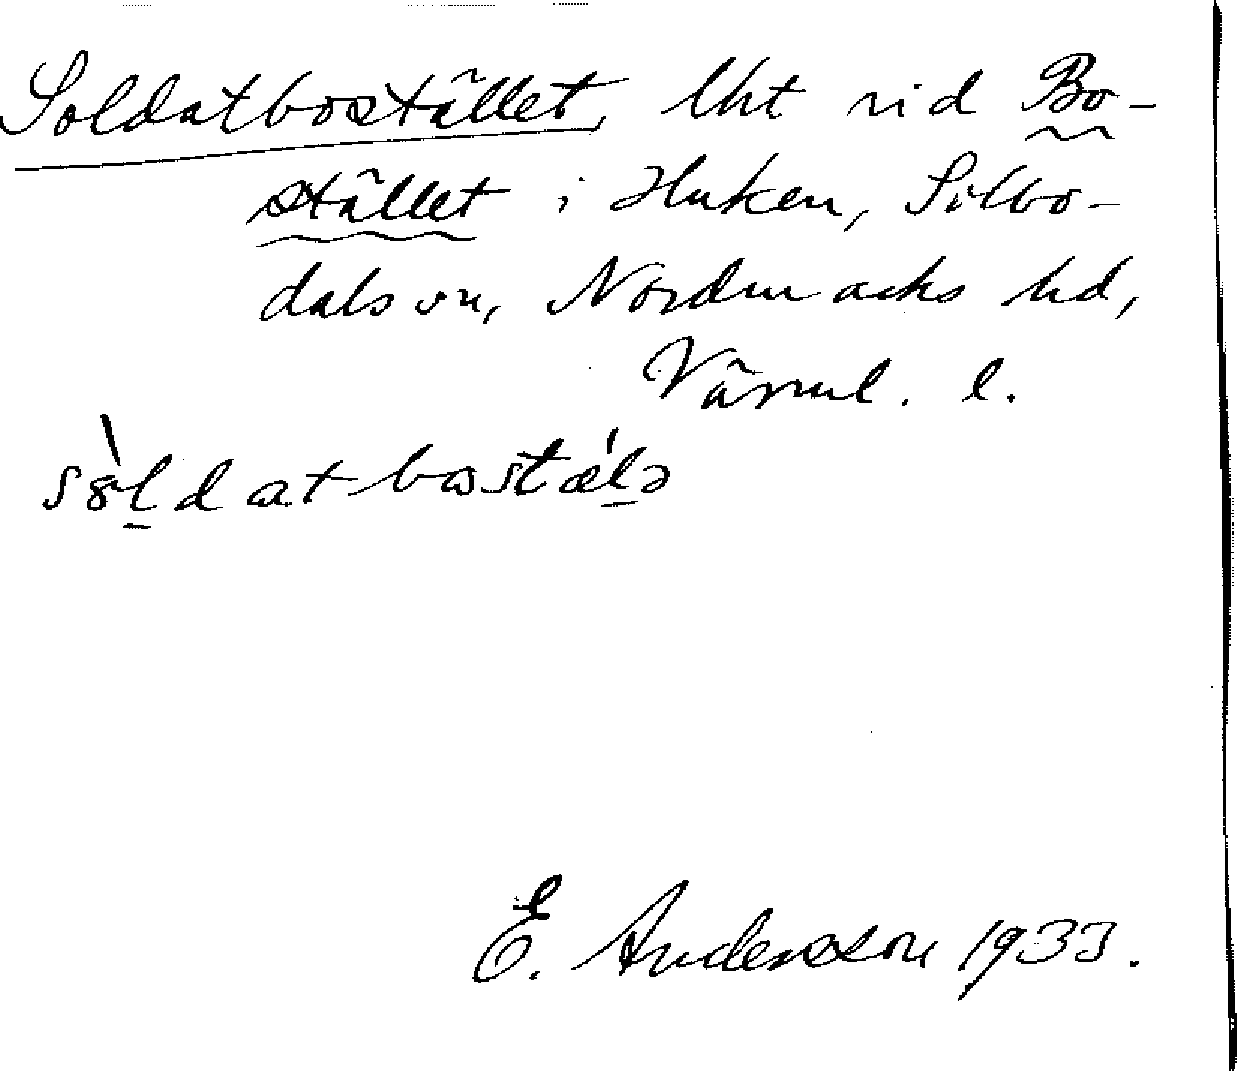 Soldatbostället, lht vid Bo-
stället i Huken, Silbo-
dals sn, Nordmarks hd,
Värml. l.
sòldatbostǽlə
E. Andersson 1933.